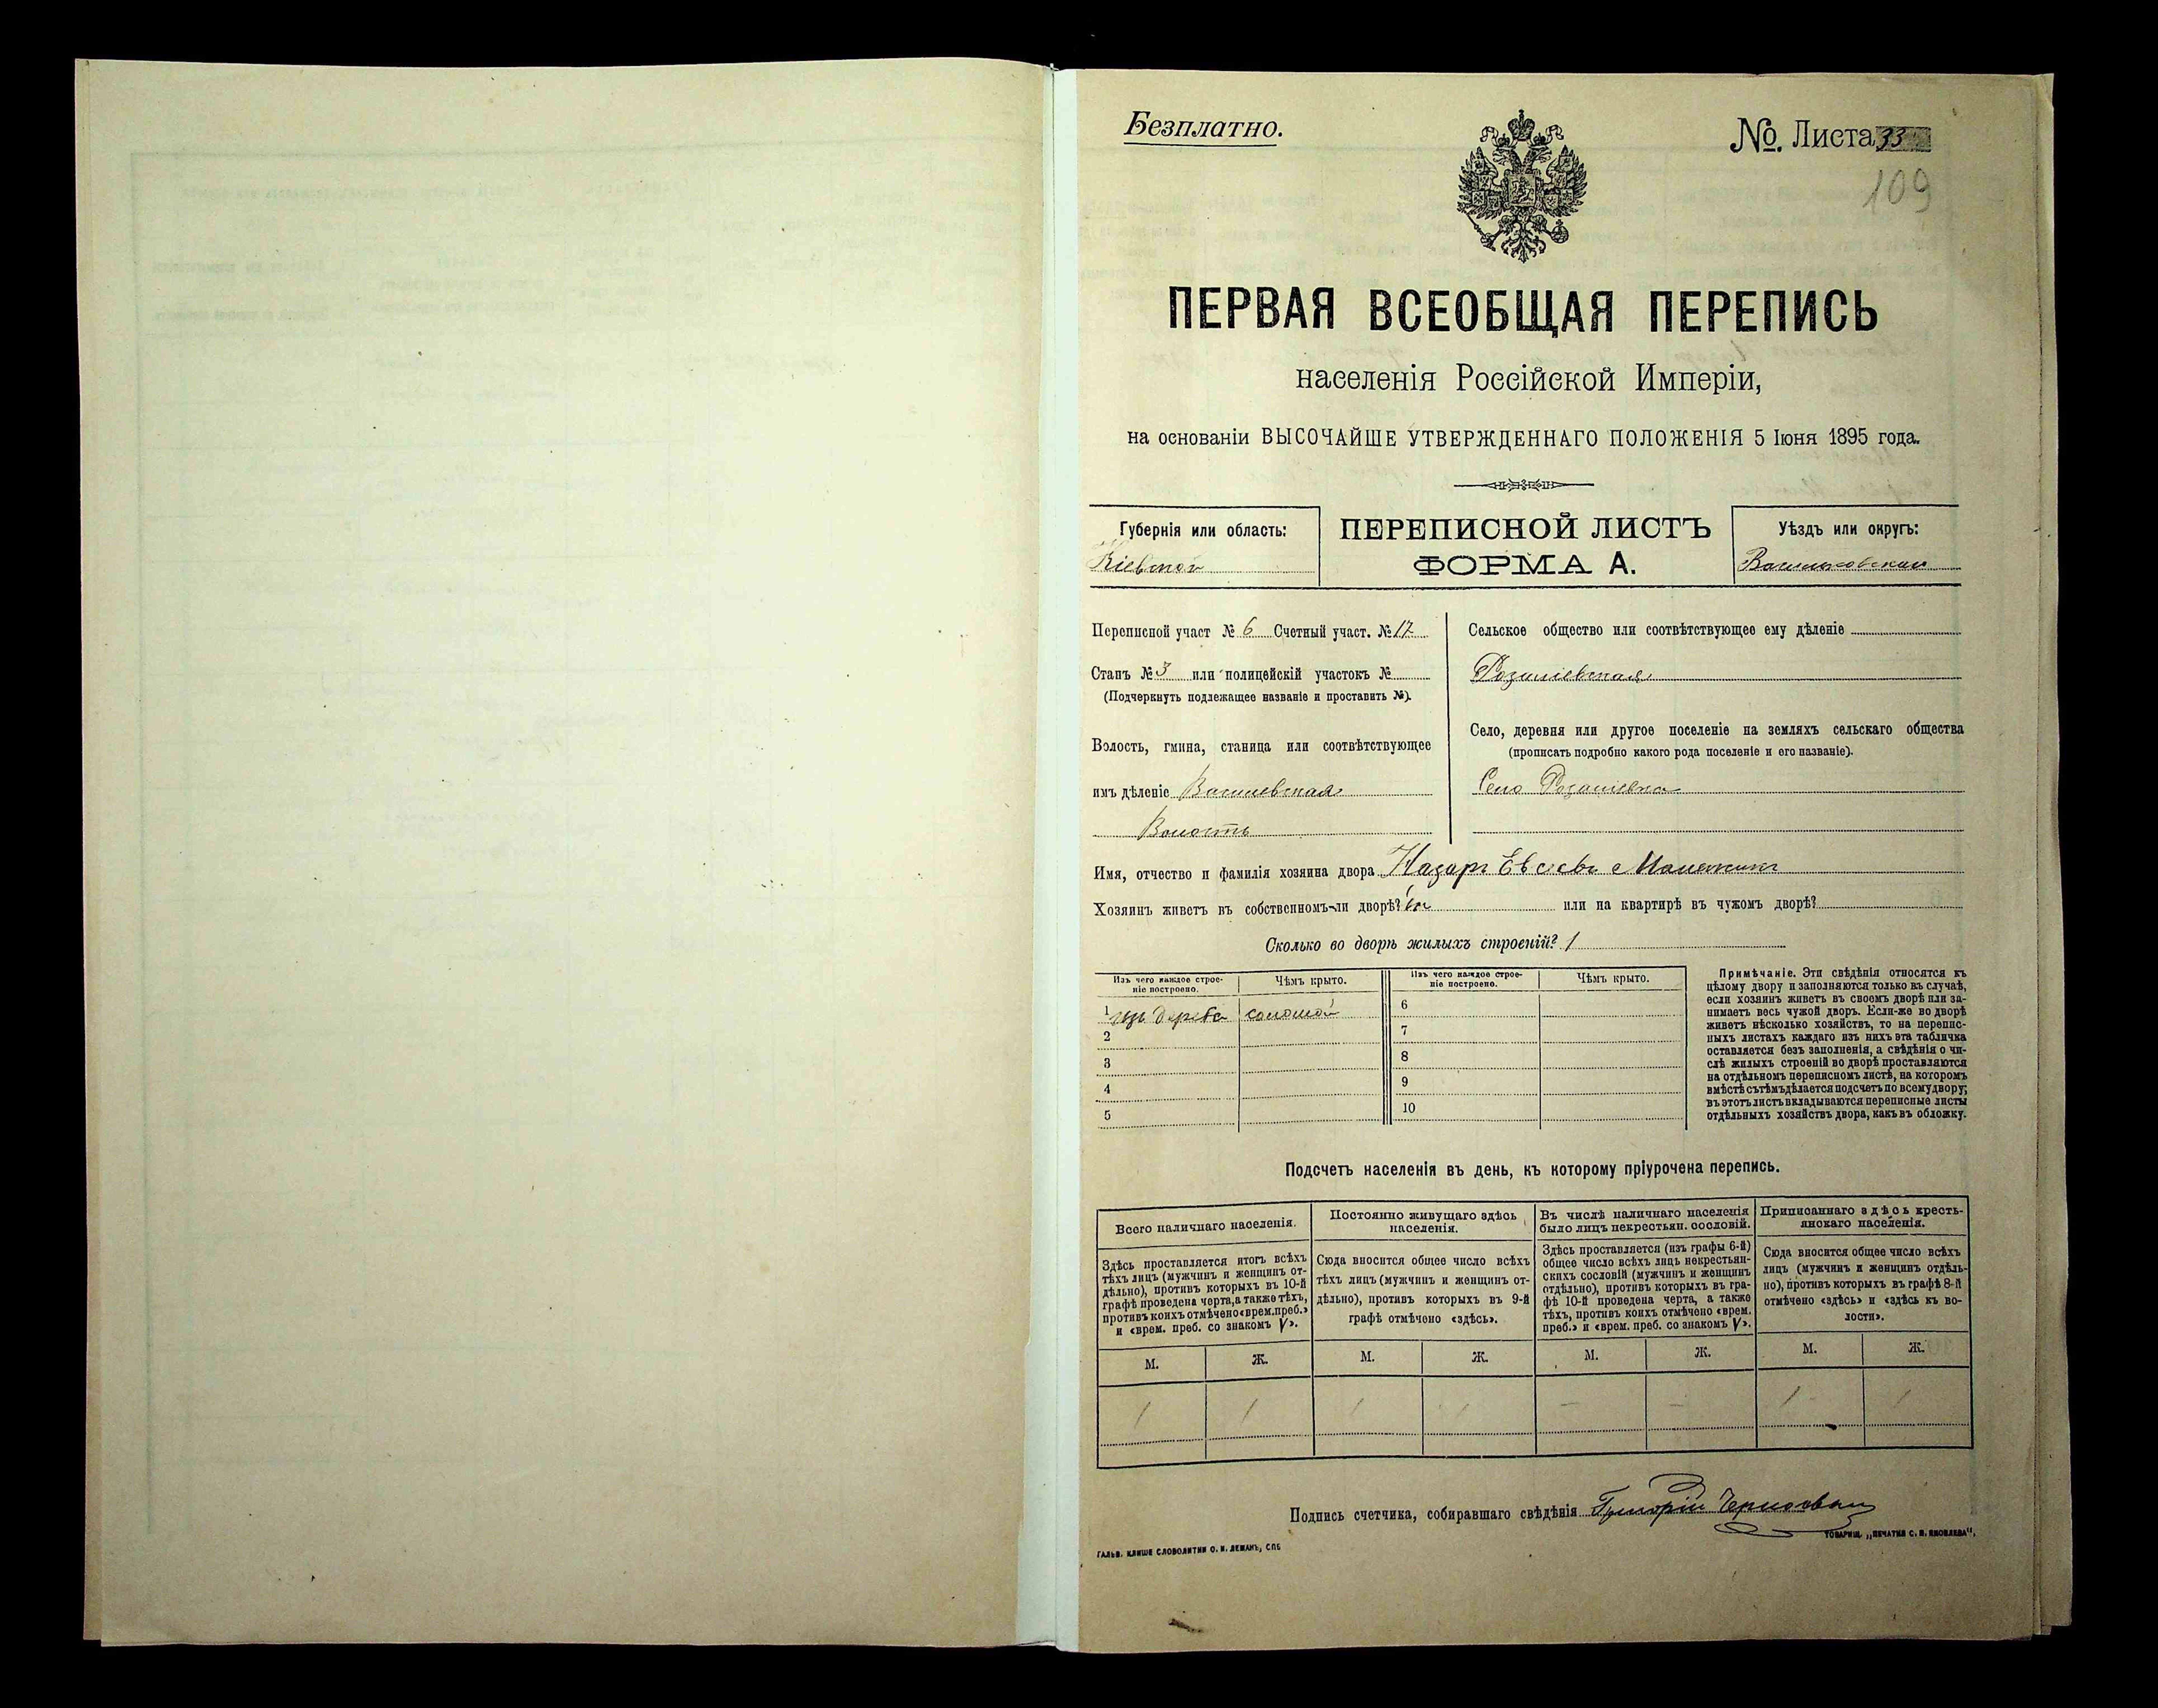 Безплатно.
№. Листа 33
109
ПЕРВАЯ ВСЕОБЩАЯ ПЕРЕПИСЬ
населенія Россійской Имперіи,
на основаніи ВЫСОЧАЙШЕ УТВЕРЖДЕННАГО ПОЛОЖЕНІЯ 5 Іюня 1895 года.
Губернія или область:
Кіевской
ПЕРЕПИСНОЙ ЛИСТЪ
ФОРМА А.
Уѣздъ или округъ:
Васильковскій
Переписной участ № 6 Счетный участ. № 17
Станъ № 3 или полицейскій участокъ №
(Подчеркнуть подлежащее названіе и проставить №).
Волость, гмина, станица или соотвѣтствующее
имъ дѣленіе
Волость
Сельское общество или соотвѣтствующее ему дѣленіе
Село, деревня или другое поселеніе на земляхъ сельскаго общества
(прописать подробно какого рода поселеніе и его названіе).
Село
Имя, отчество и фамилія хозяина двора Назаръ Евсеевъ
Хозяинъ живетъ въ собственномъ-ли дворѣ? или на квартирѣ въ чужомъ дворѣ?
Сколько во дворѣ жилыхъ строеній? 1
Изъ чего каждое строе-
ніе построено.
Чѣмъ крыто.
Изъ чего каждое строе-
ніе построено.
Чѣмъ крыто.
1 изъ дерева соломой
2
3
4
5
6
7
8
9
10
Примѣчаніе. Эти свѣдѣнія относятся къ
цѣлому двору и заполняются только въ случаѣ,
если хозяинъ живетъ въ своемъ дворѣ или за-
нимаетъ весь чужой дворъ. Если-же во дворѣ
живетъ нѣсколько хозяйствъ, то на перепис-
ныхъ листахъ каждаго изъ нихъ эта табличка
оставляется безъ заполненія, а свѣдѣнія о чи-
слѣ жилыхъ строеній во дворѣ проставляются
на отдѣльномъ переписномъ листѣ, на которомъ
вмѣстѣ съ тѣмъ дѣлается подсчетъ по всему двору;
въ этотъ листъ вкладываются переписные листы
отдѣльныхъ хозяйствъ двора, какъ въ обложку.
Подсчетъ населенія въ день, къ которому пріурочена перепись.
Всего наличнаго населенія.
Здѣсь проставляется итогъ всѣхъ
тѣхъ лицъ (мужчинъ и женщинъ от-
дѣльно), противъ которыхъ въ 10-й
графѣ проведена черта, а также тѣхъ,
противъ коихъ отмѣчено «врем. преб.»
и «врем. преб. со знакомъ V».
М. Ж.
1 1
Постоянно живущаго здѣсь
населенія.
Сюда вносится общее число всѣхъ
тѣхъ лицъ (мужчинъ и женщинъ от-
дѣльно), противъ которыхъ въ 9-й
графѣ отмѣчено «здѣсь».
М. Ж.
1 1
Въ числѣ наличнаго населенія
было лицъ некрестьян. сословій.
Здѣсь проставляется (изъ графы 6-й)
общее число всѣхъ лицъ некрестьян-
скихъ сословій (мужчинъ и женщинъ
отдѣльно), противъ которыхъ въ гра-
фѣ 10-й проведена черта, а также
тѣхъ, противъ коихъ отмѣчено «врем.
преб.» и «врем. преб. со знакомъ V».
М. Ж.
– –
Приписаннаго здѣсь кресть-
янскаго населенія.
Сюда вносится общее число всѣхъ
лицъ (мужчинъ и женщинъ отдѣль-
но), противъ которыхъ въ графѣ 8-й
отмѣчено «здѣсь» и «здѣсь къ во-
лости».
М. Ж.
1 1
Подпись счетчика, собиравшаго свѣдѣнія Григорій
ГАЛЬВ. КЛИШЕ СЛОВОЛИТНИ О. И. ЛЕМАНЪ, СПБ
ТОВАРИЩ. „ПЕЧАТНЯ С. П. ЯКОВЛЕВА“.